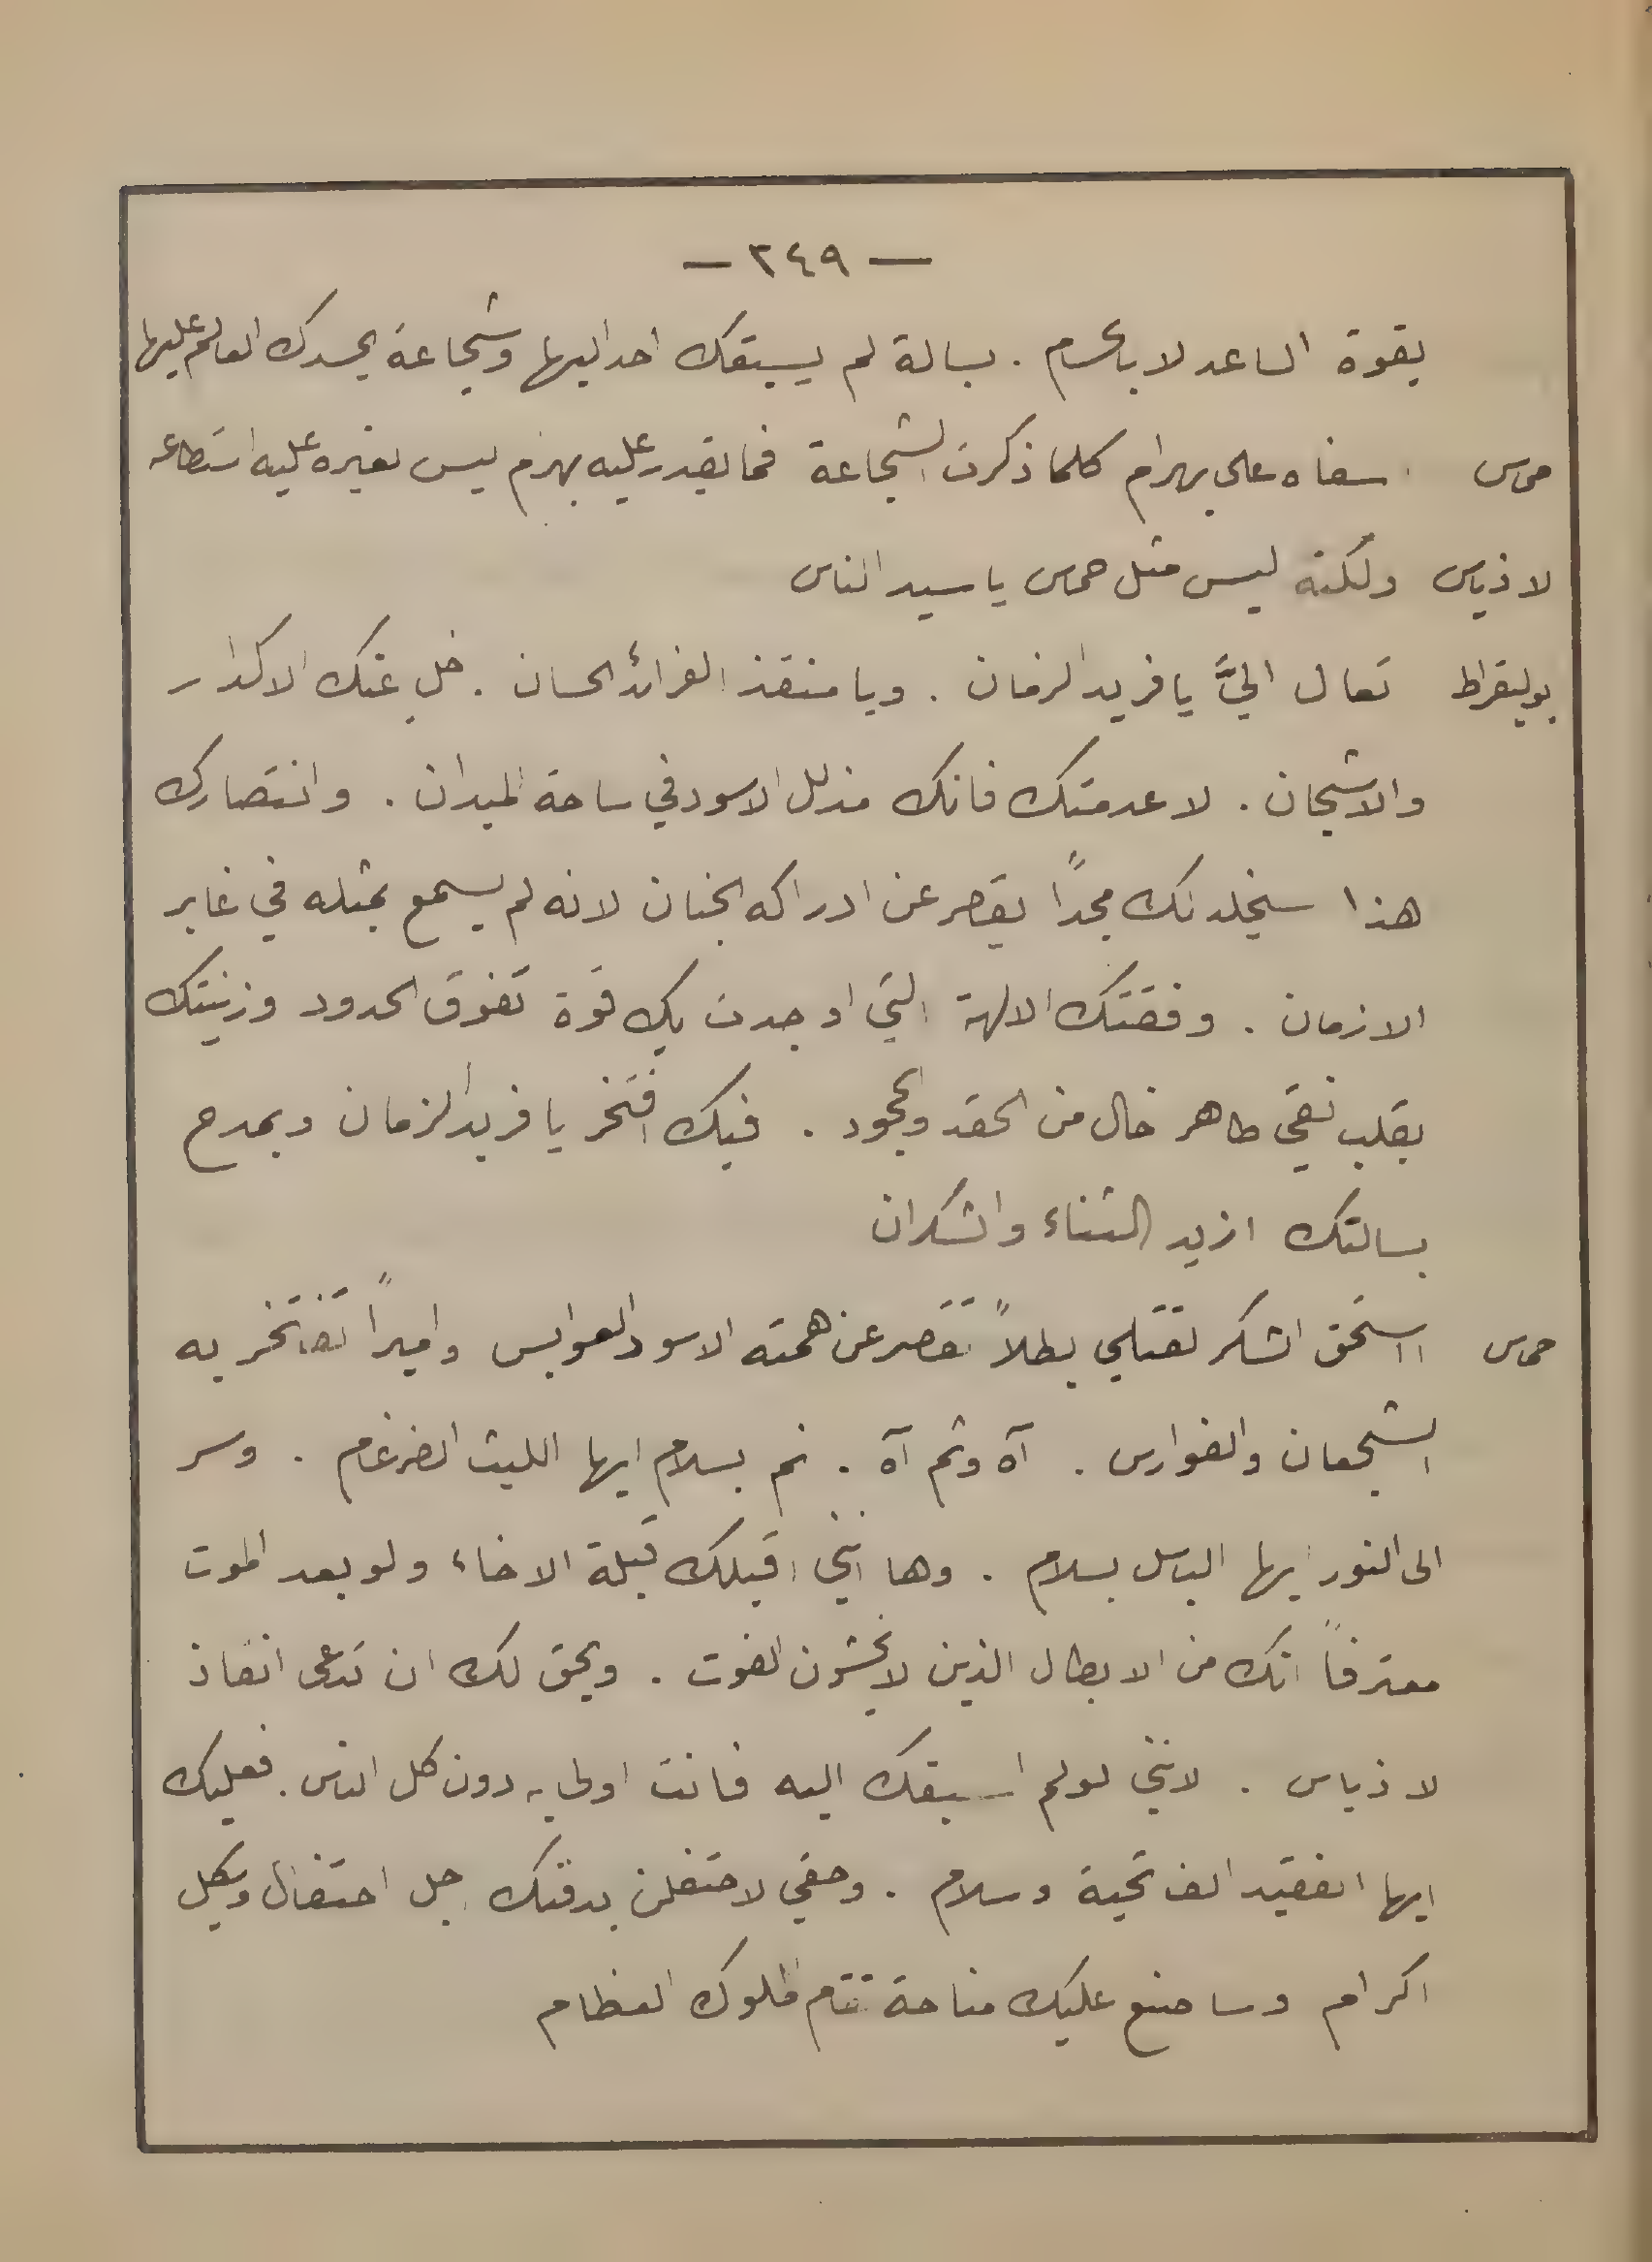 — ٢٤٩ —
بقوة الساعد لا بالحسام . بسالة لم يسبقك احد اليها وشجاعة يحسدك العالم عليها
حماس اسفاه على بهرام كلما ذكرت الشجاعة فما يقدر عليه بهرام ليس لغيره عليه استطاعه
لاذياس ولكنه ليس مثل حماس يا سيد الناس
بوليقراط تعال اليَّ يا فريد الزمان . ويا منقذ الفرائد الحسان . خل عنك الاكدار
والاشجان . لا عدمتك فانك مذلل الاسود في ساحة الميدان . وانتصارك
هذا سيخلد لك مجداً يقصر عن ادراكه الجنان لانه لم يسمع بمثله في غابر
الازمان . وفقتك الالهة التي اوجدت بك قوة تفوق الحدود وزينتك
بقلب نقي طاهر خال من الحقد والجحود . فبك افتخر يا فريد الزمان وبمدح
بسالتك ازيد الثناء والشكران
حماس أاستحق الشكر لقتلي بطلاً تقصر عن همته الاسود العوابس واميراً تفتخر به
الشجعان والفوارس . آه وثم آه . نم بسلام ايها الليث الضرغام . وسر
الى النور ايها الباسل بسلام . وها انني اقبلك قبلة الاخاء ولو بعد الموت
معترفاً انك من الابطال الذين لا يخشون الفوت . ويحق لك ان تدعى انقاذ
لاذياس . لانني لو لم اسبقك اليه فانت اولى به دون كل الناس . فعليك
ايها الفقيد الف تحية وسلام . وحقي لاحتفلن بدفنك اجل احتفال وبكل
اكرام وساصنع عليك مناحة تقام للملوك العظام